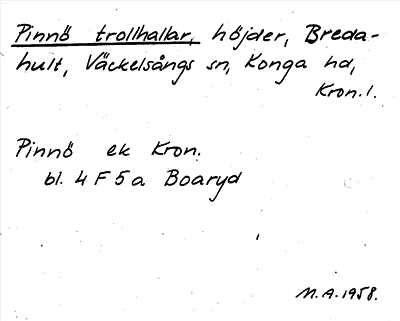 Pinnö trollhallar, höjder, Breda-
hult, Väckelsångs sn, Konga hd,
Kron. l.
Pinnö ek Kron.
bl. 4 F 5 a Boaryd
M.A. 1958.